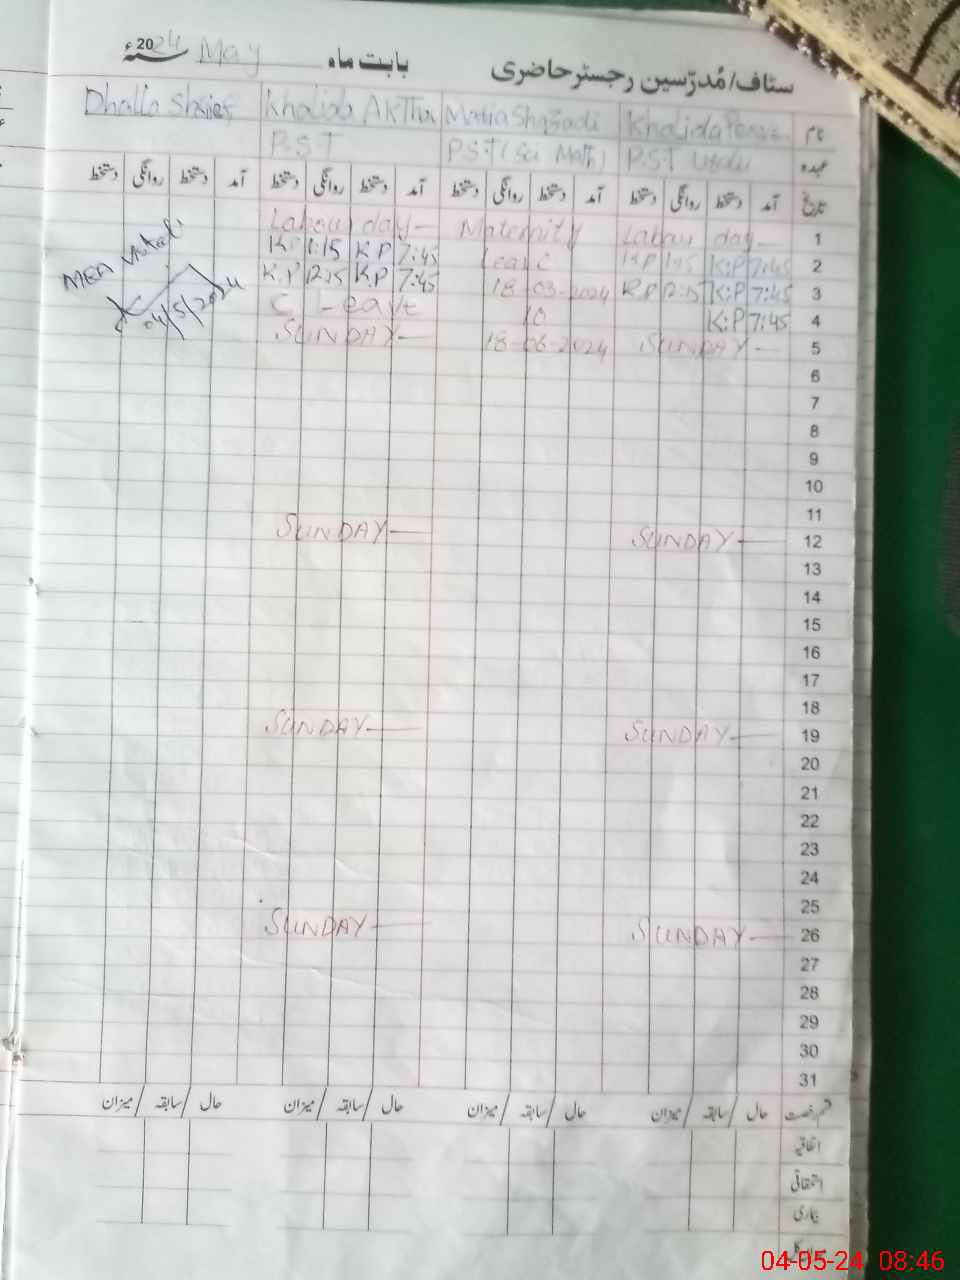 ستاف/مُدرّسین رجسٹر حاضری بابت ماہ May 2024ء
نام Khalida Parve. Maria Shazadi Khalida AKThar Dhalla Sharief
عہدہ P.S.T Urdu P.S.T (Sci Math) P.S.T
تاریخ آمد دستخط روانگی دستخط آمد دستخط روانگی دستخط آمد دستخط روانگی دستخط آمد دستخط روانگی دستخط
1 Labour day — Maternity Labour day —
2 7:45 K:P 1:15 K.P Leave 7:45 K.P 1:15 K.P
3 7:45 K:P 12:15 K.P 18-03-2024 7:45 K.P 12:15 K.P
4 7:45 K:P To C Leave
5 SUNDAY — 18-06-2024 SUNDAY —
MEA Visited
04/5/2024
6
7
8
9
10
11
12 SUNDAY — SUNDAY —
13
14
15
16
17
18
19 SUNDAY — SUNDAY —
20
21
22
23
24
25
26 SUNDAY — SUNDAY —
27
28
29
30
31
قسم رخصت حال / سابقہ / میزان حال / سابقہ / میزان حال / سابقہ / میزان حال / سابقہ / میزان
اتفاقیہ
استحقاقی
بیماری
04-05-24 08:46